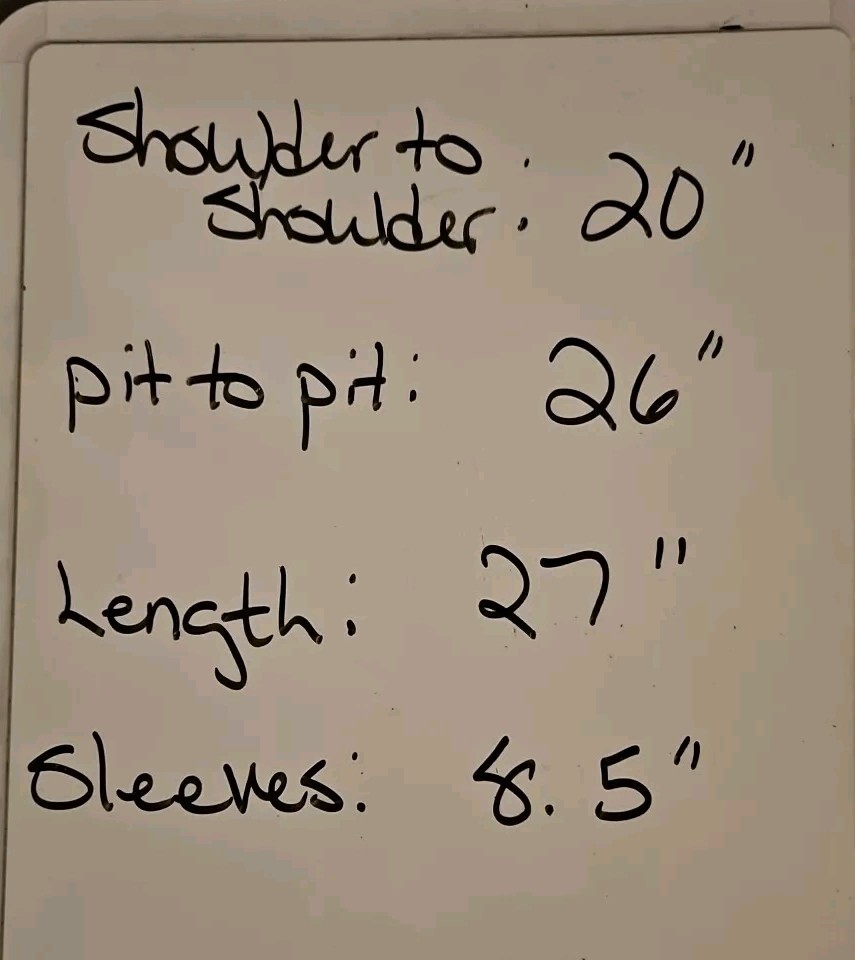 Shoulder to
Shoulder: 20"
pit to pit: 26"
Length: 27"
Sleeves: 8.5"